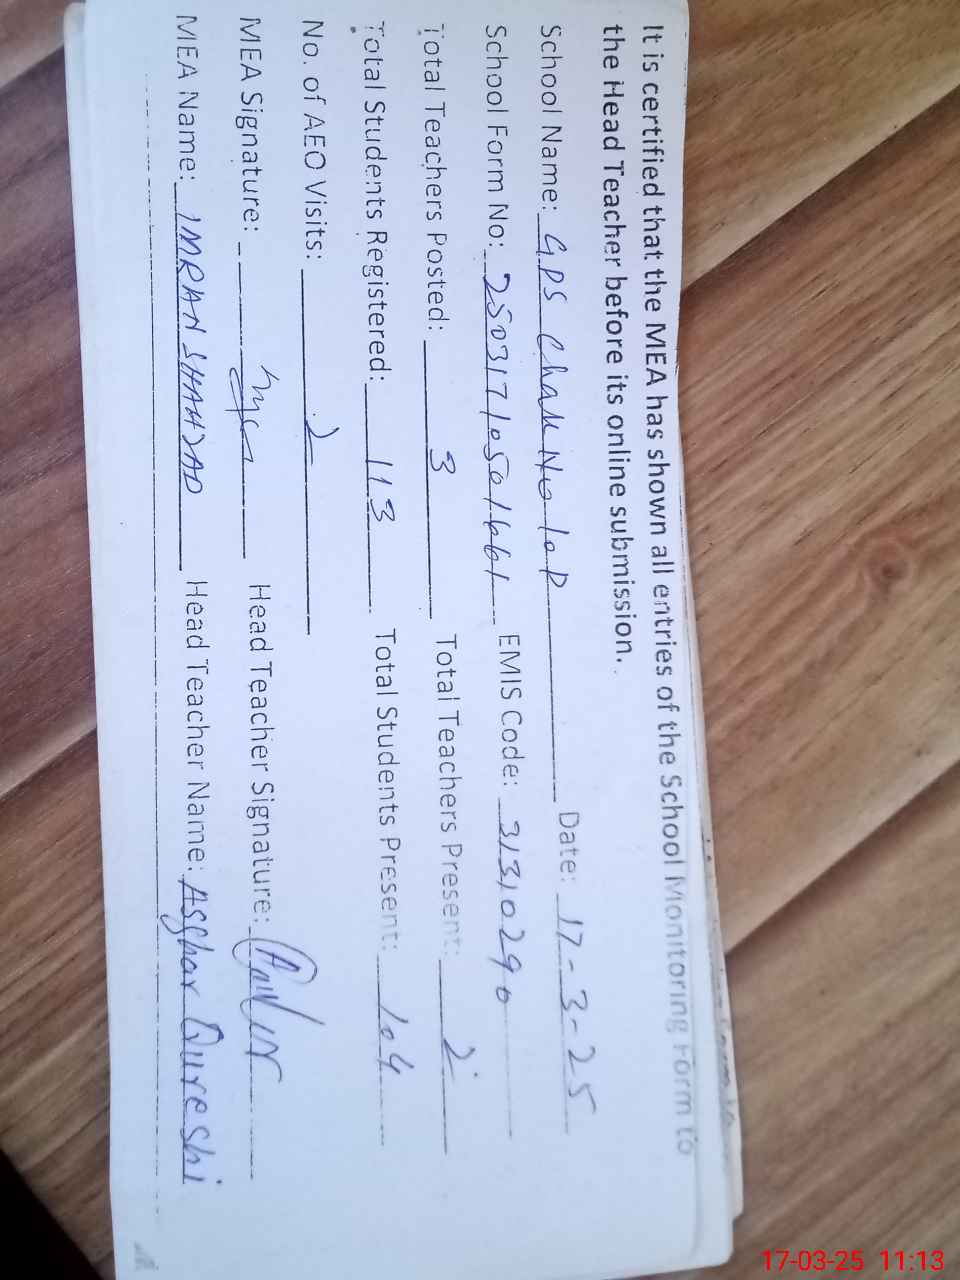 It is certified that the MEA has shown all entries of the School Monitoring Form to
the Head Teacher before its online submission.
School Name: GPS Chak No 10P Date: 17-3-25
School Form No: 25031710501661 EMIS Code: 31310290
Total Teachers Posted: 3 Total Teachers Present: 2
Total Students Registered: 113 Total Students Present: 104
No. of AEO Visits: 2
MEA Signature: Head Teacher Signature:
MEA Name: IMRAN SHAHZAD Head Teacher Name: Asghar Qureshi
17-03-25 11:13